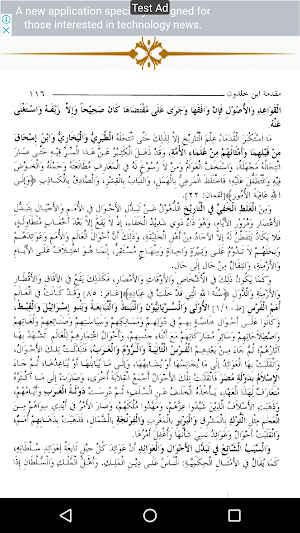 A new application spec gned for
those interested in technology news.
Test Ad
مقدمة ابن خلدون
١١٦
القَواعِدِ والأُصُولِ فَإِنْ وافَقَها وَجَرَى عَلَى مُقْتَضَاهَا كان صَحِيْحاً وإِلَّا زَيَّفَهُ واسْتَغْنَى
عَنْهُ.
ما اسْتَكْبَرَ القُدَمَاءُ عِلْمَ التَّارِيخِ إلا لِذَلِكَ حَتَّى انْتَحَلَهُ الطَّبَرِيُّ والبُخَارِيُّ وابْنُ إِسْحَاقَ
مِنْ قَبْلِهِما وأمْثَالُهُمْ مِنْ عُلَماءِ الأُمَّةِ، وَقَدْ ذَهَلَ الكَثِيرُ عَنْ هَذا السِّرِّ فِيهِ حَتَّى صَارَ
انْتِحَالُهُ مَجْهَلَةً، واسْتَخَفَّ العَوَامُ وَمَنْ لا رُسُوخَ لَهُ في المعارف مُطالَعَتَهُ وحَمْلَهُ والخَوْضَ
فِيهِ والتَّطَفُّلَ عَلَيْهِ، فاخْتَلَطَ المَرْعِيُّ بالهَمَلِ، واللُّبَابُ بالقِشْرِ، والصَّادِقُ بالكَاذِبِ ﴿وإلى
اللهِ عاقِبَةُ الأُمُورِ﴾ [لقمان: ٢٢].
وَمِنَ الغَلَطِ الخَفِيِّ في التَّارِيخِ الذُّهُولُ عَنْ تَبَدُّلِ الأَحْوَالِ في الأُمَمِ والأَجْيَالِ بِتَبَدُّلِ
الأَعْصَارِ ومُرُورِ الأَيَّامِ، وَهُوَ داءٌ دَوِيٌّ شَدِيدُ الخَفَاءِ، إِذْ لا يَقَعُ إلَّا بَعْدَ أَحْقابٍ مُتَطَاوِلَةٍ،
فلا يَكَادُ يَتَفَطَّنُ لَهُ إلَّا الآحَادُ مِنْ أَهْلِ الخَلِيقَةِ، وذَلِكَ أَنَّ أَحْوَالَ العَالَمِ والأُمَمِ وَعَوَائِدَهُمْ
ونِحَلَهُمْ لا تَدُومُ عَلَى وَتِيرَةٍ واحِدَةٍ ومِنْهاجٍ مُسْتَقِرٍّ، إِنَّمَا هُوَ اخْتِلافٌ عَلَى الأَيَّامِ
والأَزْمِنَةِ، وانْتِقَالٌ مِنْ حَالٍ إلى حَالٍ.
وكَمَا يَكُونُ ذَلِكَ في الأَشْخَاصِ والأَوْقَاتِ والأَمْصَارِ، فَكَذَلِكَ يَقَعُ في الآفَاقِ والأَقْطَارِ
والأَزْمِنَةِ والدُّوَلِ ﴿سُنَّةَ اللهِ الَّتِي قَدْ خَلَتْ في عِبَادِهِ﴾ [غافر: ٨٥] وقَدْ كَانَتْ في العَالَمِ
أُمَمُ الفُرْسِ الأُولَى والسُّرْيَانِيُّونَ والنَّبَطُ والتَّبَابِعَةُ وبَنُو إِسْرَائِيلَ والقِبْطُ،
وكَانُوا عَلَى أَحْوَالٍ خَاصَّةٍ بِهِمْ في دُوَلِهِمْ ومَمَالِكِهِمْ وسِيَاسَتِهِمْ وصَنَائِعِهِمْ ولُغَاتِهِمْ
واصْطِلاحَاتِهِمْ وسَائِرِ مُشَارَكَاتِهِمْ مَعَ أَبْنَاءِ جِنْسِهِمْ، وأَحْوَالِ اعْتِمَارِهِمْ لِلْعَالَمِ تَشْهَدُ بِهَا
آثَارُهُمْ، ثُمَّ جَاءَ مِنْ بَعْدِهِمُ الفُرْسُ الثَّانِيَةُ والرُّومُ والعَرَبُ، فَتَبَدَّلَتْ تِلْكَ الأَحْوَالُ،
وانْقَلَبَتْ بِهَا العَوَائِدُ إلى مَا يُجَانِسُهَا أَوْ يُشَابِهُهَا، وإلى مَا يُبَايِنُهَا أَوْ يُبَاعِدُهَا، ثُمَّ جَاءَ
الإِسْلامُ بِدَوْلَةِ مُضَرَ فَانْقَلَبَتْ تِلْكَ الأَحْوَالُ أَجْمَعُ انْقِلابَةً أُخْرَى، وصَارَتْ إلى مَا أَكْثَرُهُ
مُتَعَارَفٌ لِهَذَا العَهْدِ، يَأْخُذُهُ الخَلَفُ عَنِ السَّلَفِ، ثُمَّ دَرَسَتْ دَوْلَةُ العَرَبِ وأَيَّامُهُمْ،
وذَهَبَتِ الأَسْلافُ الَّذِينَ شَيَّدُوا عِزَّهُمْ، ومَهَّدُوا مُلْكَهُمْ، وصَارَ الأَمْرُ في أَيْدِي سِوَاهُمْ مِنَ
العَجَمِ مِثْلِ التُّرْكِ بالمَشْرِقِ والبَرْبَرِ بالمَغْرِبِ والفِرَنْجَةِ بالشَّمَالِ، فَذَهَبَتْ بِذَهَابِهِمْ أُمَمٌ،
وانْقَلَبَتْ أَحْوَالٌ وعَوَائِدُ نُسِيَ شَأْنُهَا وأُغْفِلَ أَمْرُهَا.
والسَّبَبُ الشَّائِعُ في تَبَدُّلِ الأَحْوَالِ والعَوَائِدِ أَنَّ عَوَائِدَ كُلِّ جِيلٍ تَابِعَةٌ لِعَوَائِدِ سُلْطَانِهِ،
كَمَا يُقَالُ في الأَمْثَالِ الحِكَمِيَّةِ: النَّاسُ عَلَى دِينِ المَلِكِ. وأَهْلُ المُلْكِ والسُّلْطَانِ إِذَا